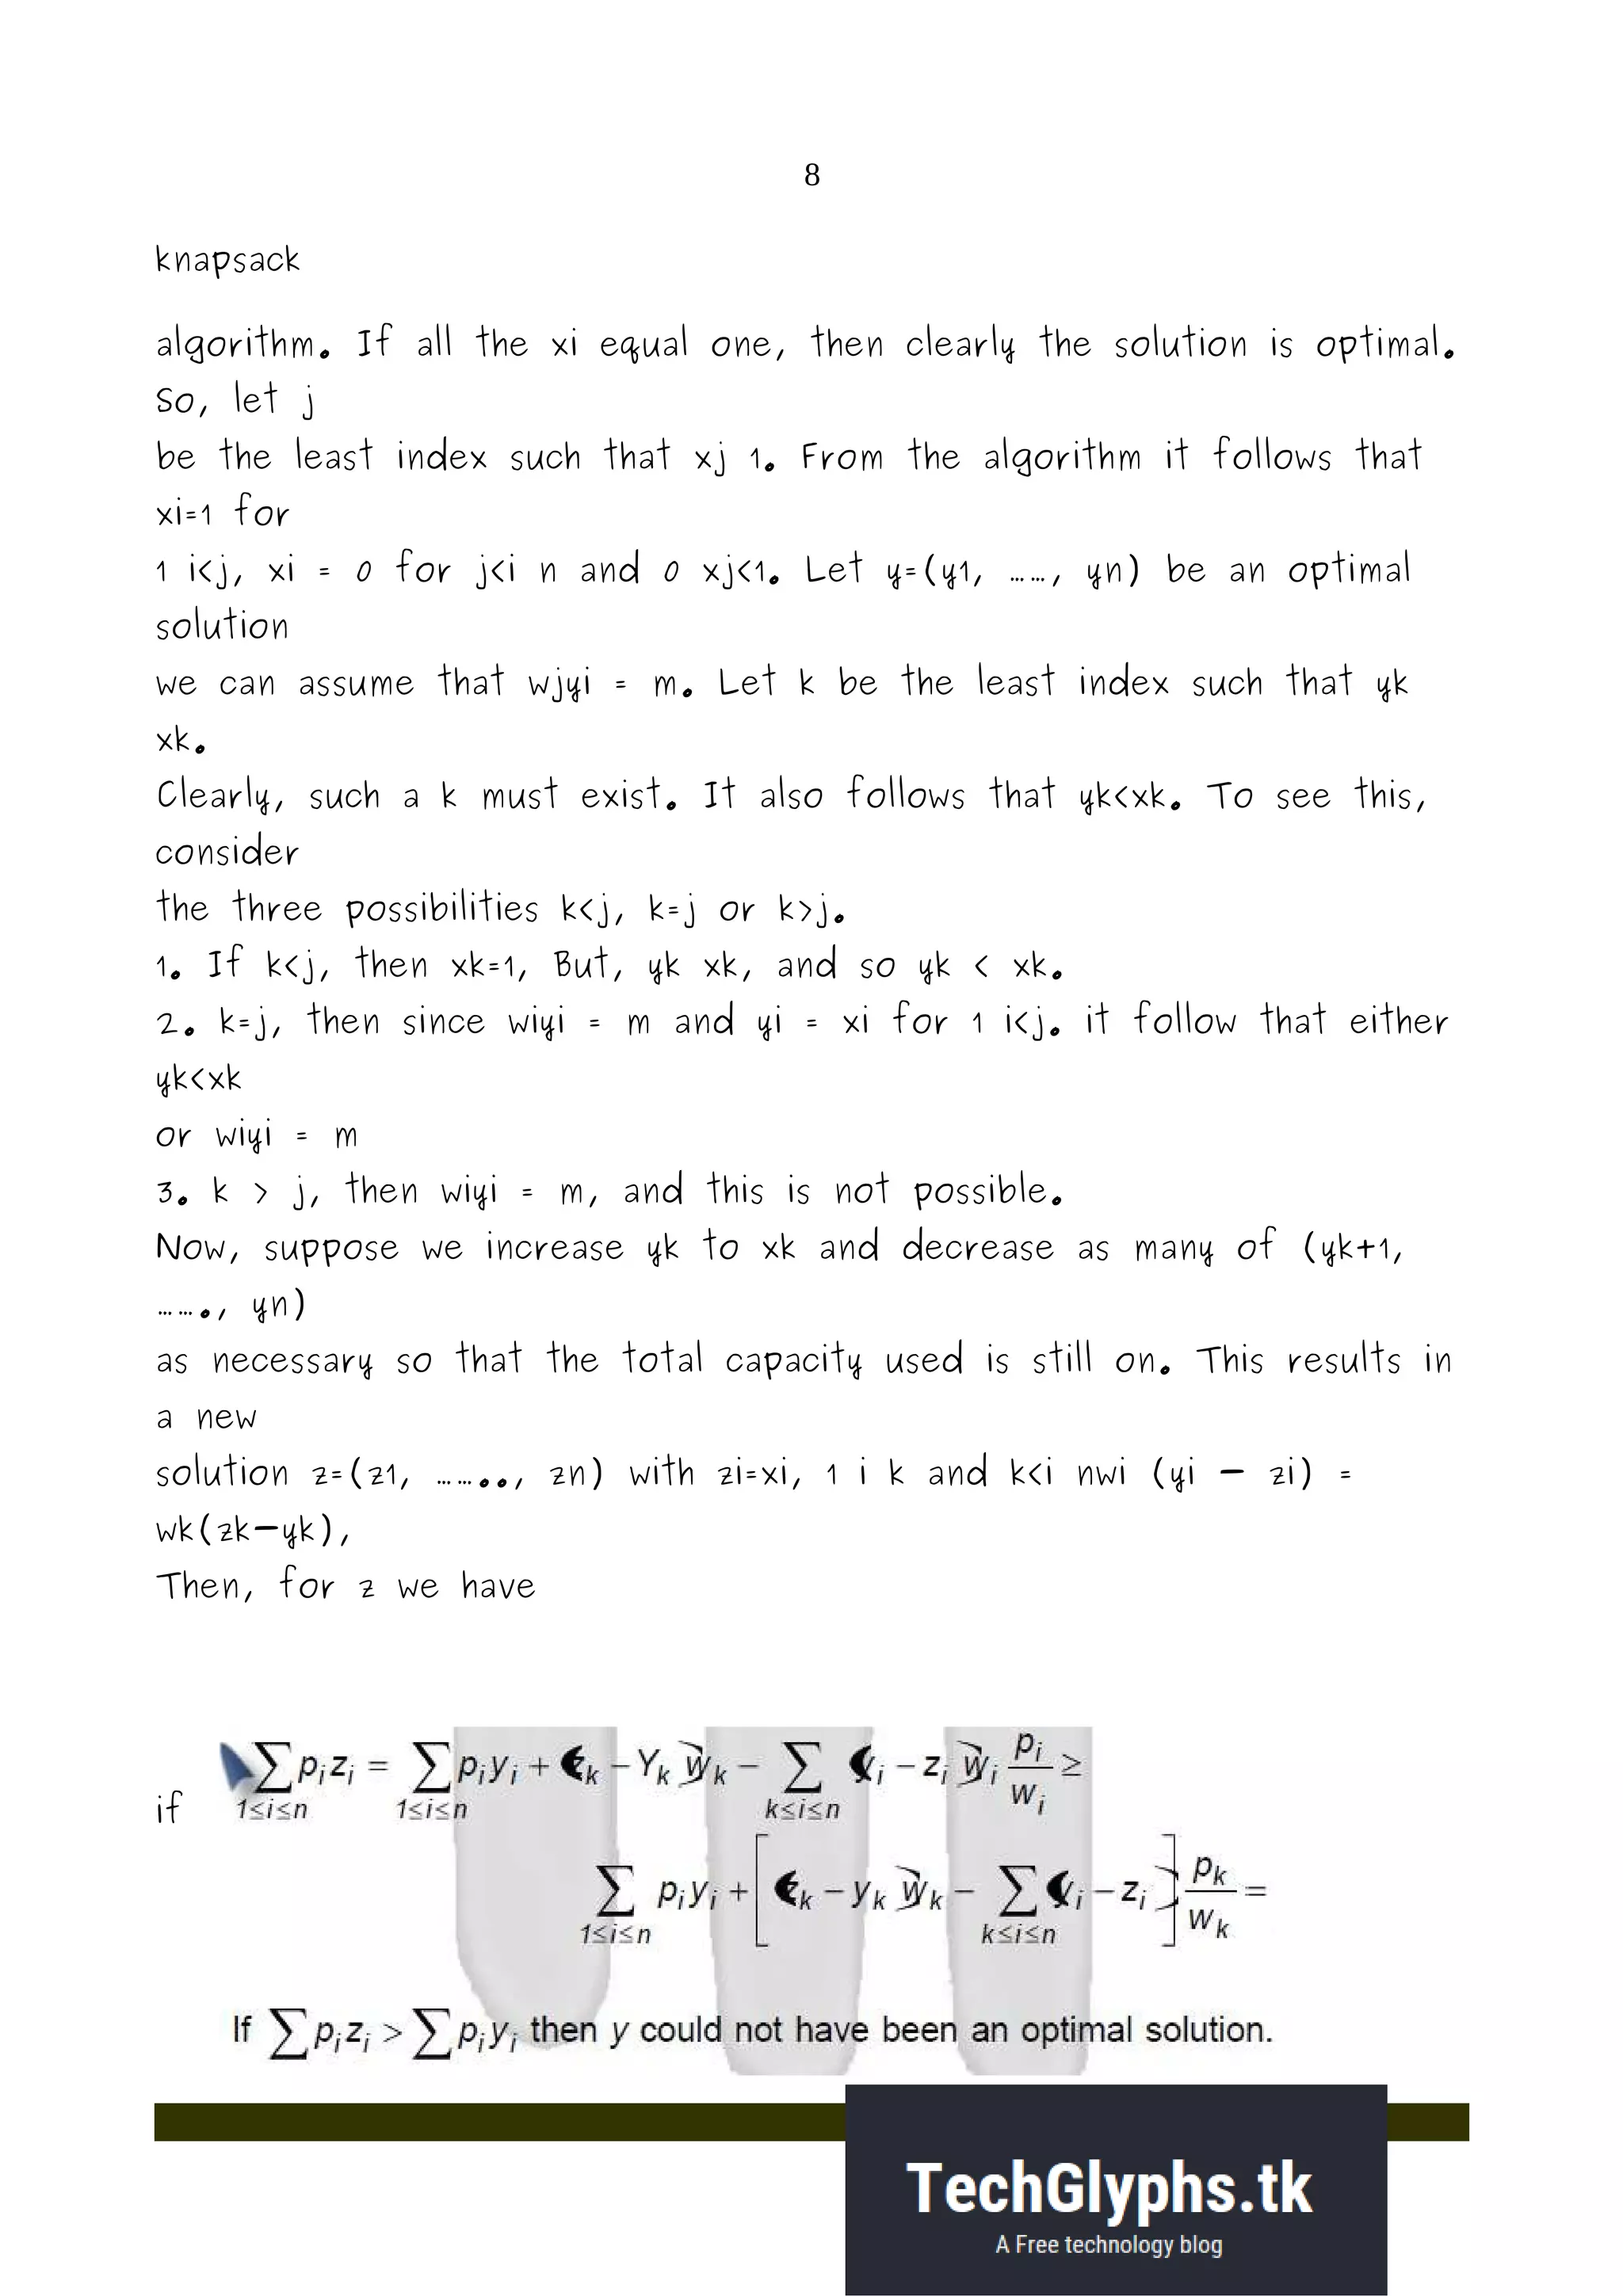 8
knapsack
algorithm. If all the xi equal one, then clearly the solution is optimal.
So, let j
be the least index such that xj 1. From the algorithm it follows that
xi=1 for
1 i<j, xi = 0 for j<i n and 0 xj<1. Let y=(y1, ……, yn) be an optimal
solution
we can assume that wjyi = m. Let k be the least index such that yk
xk.
Clearly, such a k must exist. It also follows that yk<xk. To see this,
consider
the three possibilities k<j, k=j or k>j.
1. If k<j, then xk=1, But, yk xk, and so yk < xk.
2. k=j, then since wiyi = m and yi = xi for 1 i<j. it follow that either
yk<xk
or wiyi = m
3. k > j, then wiyi = m, and this is not possible.
Now, suppose we increase yk to xk and decrease as many of (yk+1,
……., yn)
as necessary so that the total capacity used is still on. This results in
a new
solution z=(z1, …….., zn) with zi=xi, 1 i k and k<i nwi (yi – zi) =
wk(zk–yk),
Then, for z we have
if
∑ p_i z_i = ∑ p_i y_i + z_k – Y_k w_k – ∑ y_i – z_i w_i p_i/w_i ≥
1≤i≤n 1≤i≤n k≤i≤n
∑ p_i y_i + [ z_k – y_k w_k – ∑ y_i – z_i ] p_k/w_k =
1≤i≤n k≤i≤n
If ∑ p_i z_i > ∑ p_i y_i then y could not have been an optimal solution.
TechGlyphs.tk
A Free technology blog